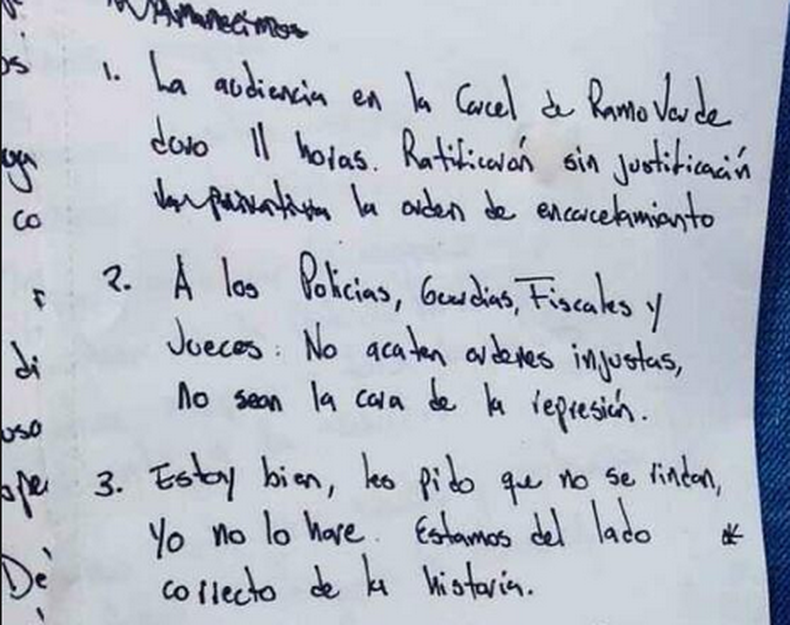 Amanecimos
1. La audiencia en la Carcel de Ramo Verde
duro 11 horas. Ratificarón sin justificación
la privativa la orden de encarcelamianto
2. A los Policias, Guardias, Fiscales y
Jueces: No acaten ordenes injustas,
no sean la cara de la represión.
3. Estoy bien, les pido que no se rindan,
Yo no lo hare. Estamos del lado *
correcto de la historia.
os
co
r
di
uso
ope
De